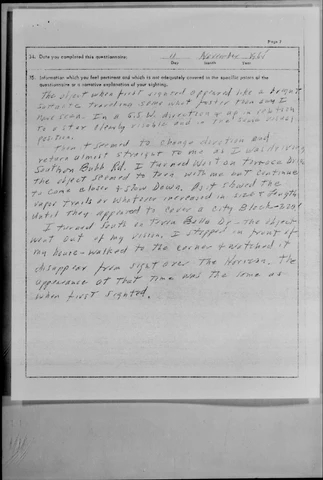 Page 5
34. Date you completed this questionnaire:
11 November
Day Month Year
35. Information which you feel pertinent and which is not adequately covered in the specific points of the
questionnaire or a narrative explanation of your sighting.
The object when first sighted appeared like a bright
satelite traveling some what faster than any I
have seen. In a S.S.W. direction
to a star clearly visible and in that same
position.
Then it seemed to change direction and
return almost straight to me as I was driving
Southon Babb Rd. I turned West on
the object seemed to turn with me and continue
to come closer & slow down. As it slowed the
vapor trails or whatever increased in size & length
until they appeared to cover a city block
I turned South on Terra Bella Dr - the object
went out of my vision. I stopped in front of
my house - walked to the corner & watched it
disappear from sight over the Horizon. The
appearance at that time was the same as
when first sighted.